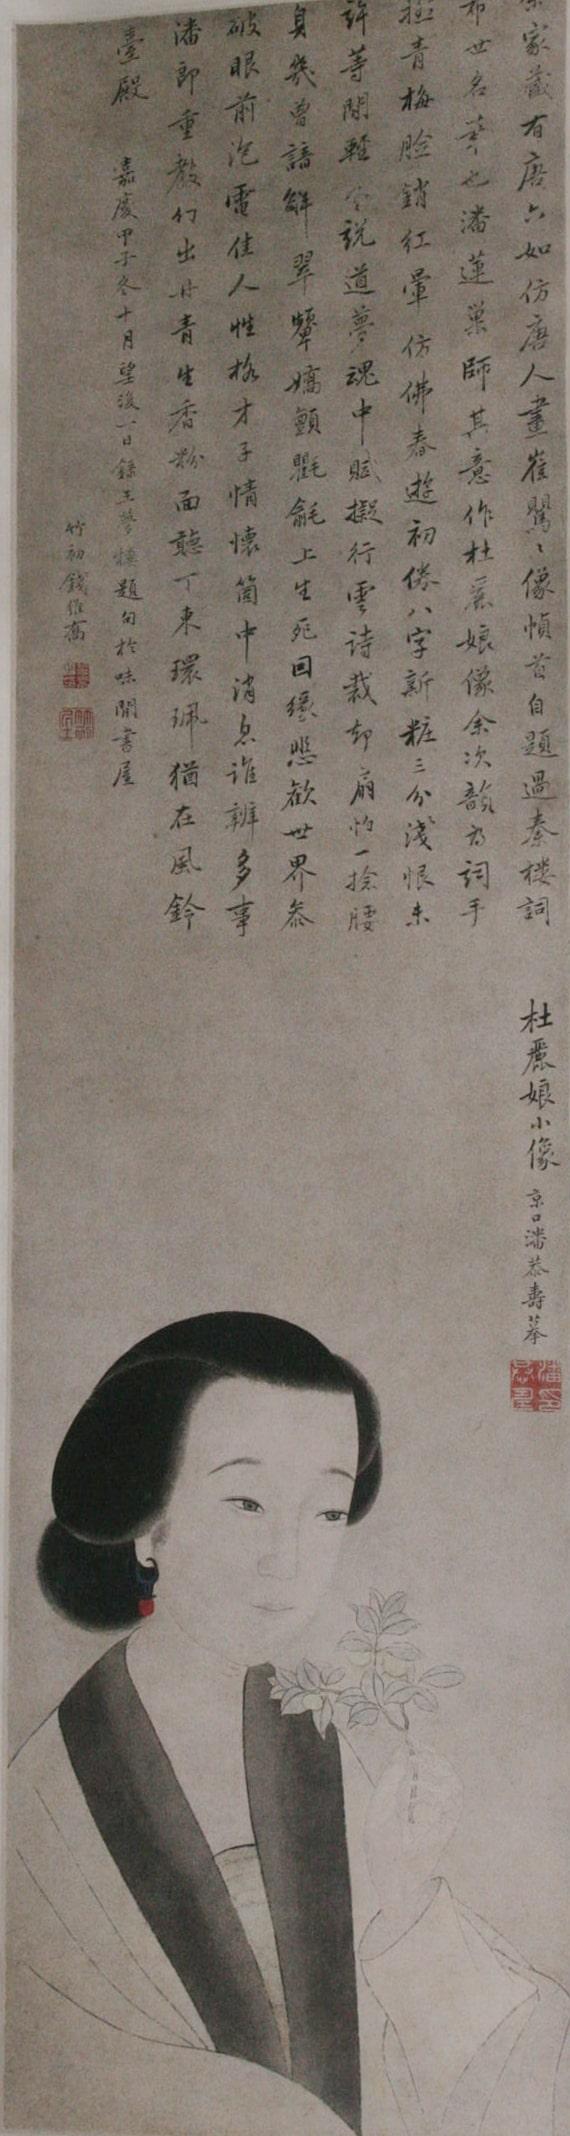 家藏有唐六如仿唐人畫崔鶯鶯像幀首自題過秦樓詞
希世名筆也潘蓮巢師其意作杜麗娘像余次韻為詞手
青梅臉銷紅暈仿佛春遊初倦八字新粧三分淺恨未
許等閒輕說道夢魂中賦擬行雲詩裁却扇怕一捻腰
身幾曾諳解翠顰嬌顫氍毹上生死回緣悲歡世界參
破眼前泡電佳人性格才子情懷箇中消息誰辨多事
潘郎重教幻出丹青生香粉面聽丁東環珮猶在風鈴
臺殿
嘉慶甲子冬十月望後一日錄王夢樓題句於味閒書屋
竹初錢維喬
杜麗娘小像
京口潘恭壽摹